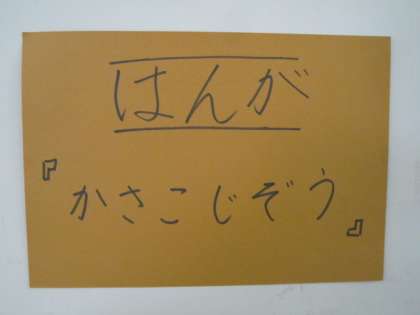 はんが
『かさこじぞう』